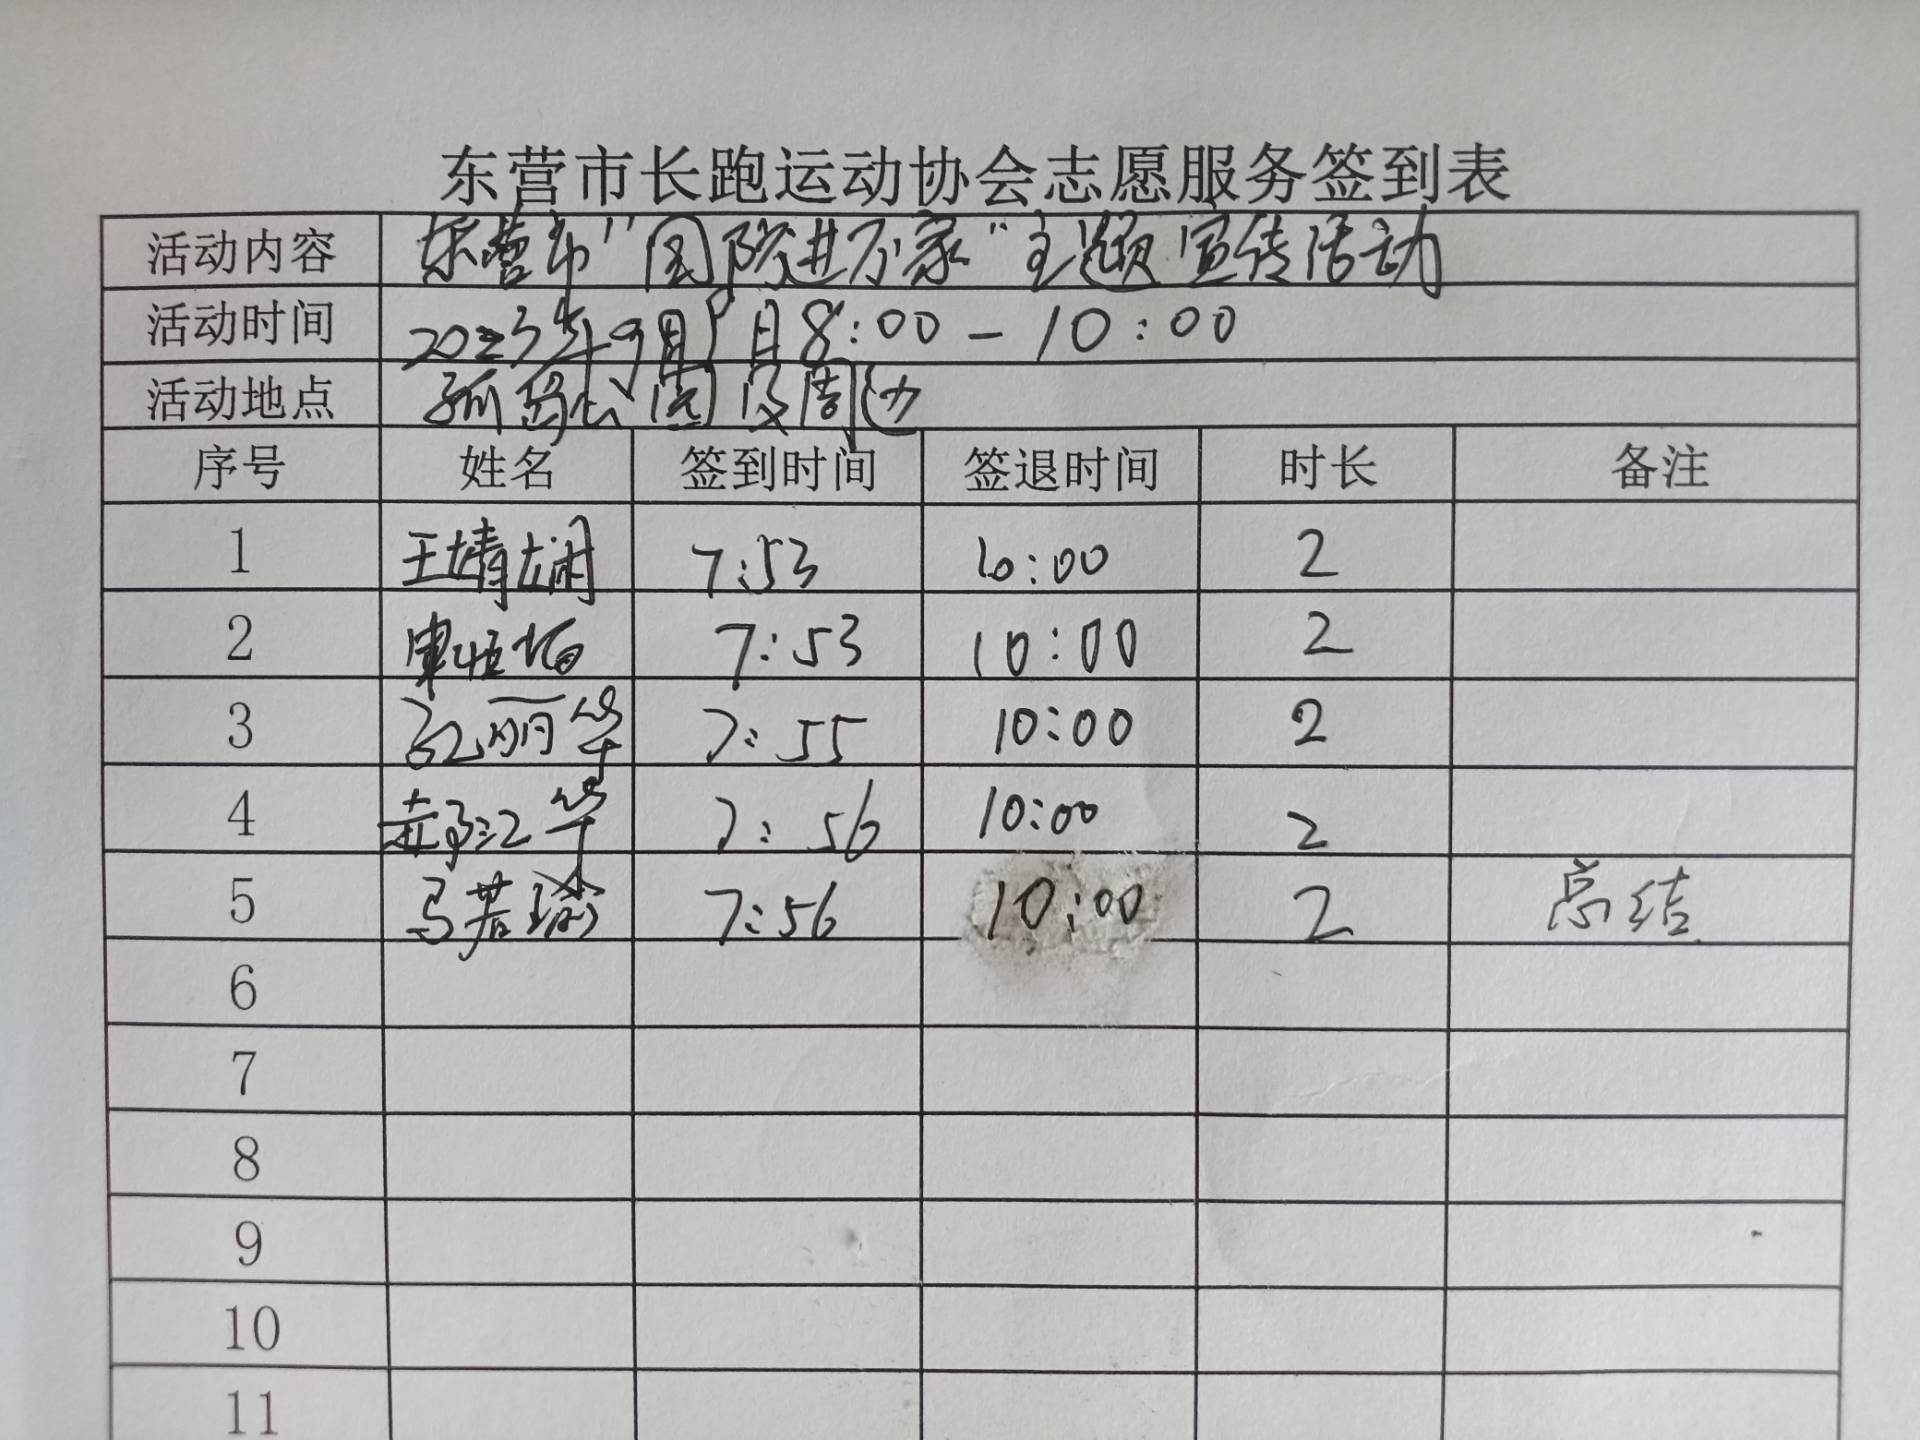 东营市长跑运动协会志愿服务签到表
活动内容 东营市"国防进万家"主题宣传活动
活动时间 2023年9月 日8:00-10:00
活动地点 孤岛公园及周边
序号 姓名 签到时间 签退时间 时长 备注
1 王婧娴 7:53 10:00 2
2 7:53 10:00 2
3 丽华 7:55 10:00 2
4 7:56 10:00 2
5 马若瑜 7:56 10:00 2 总结
6
7
8
9
10
11